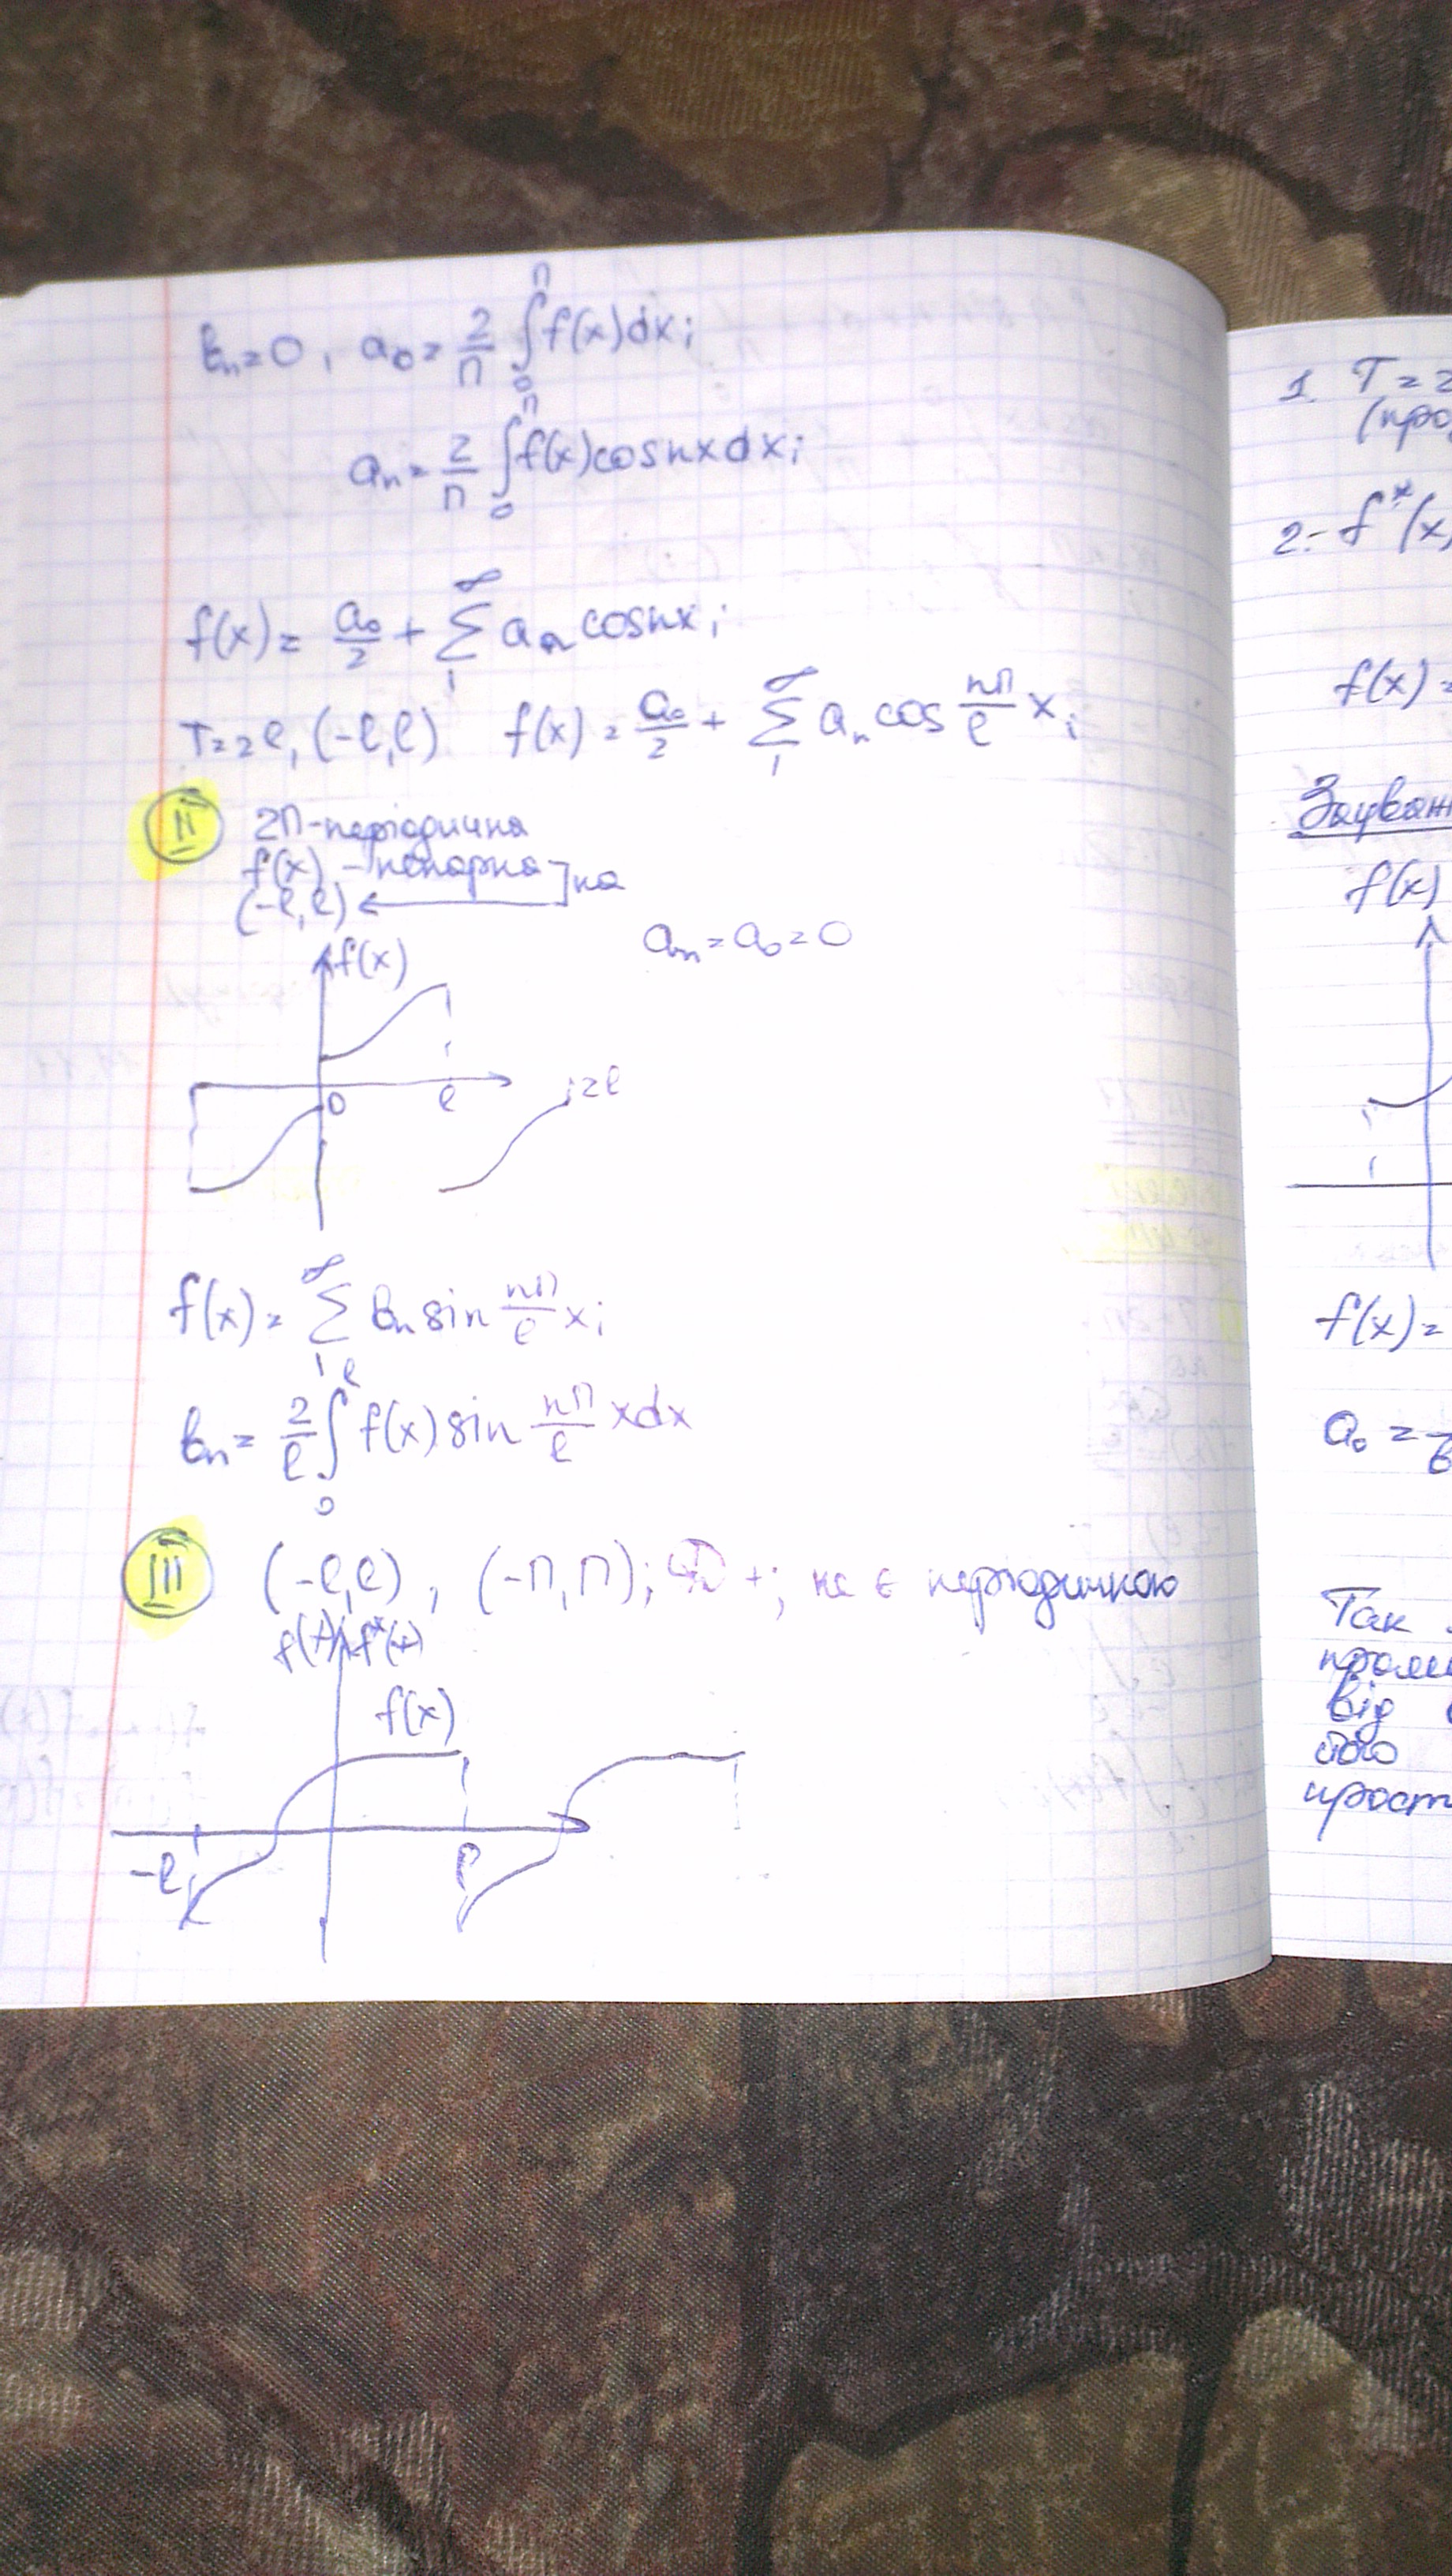 bₙ=0, a₀ = 2/π ∫₀^π f(x)dx;
aₙ = 2/π ∫₀^π f(x)cosnxdx;
f(x) = a₀/2 + ∑₁^∞ aₙ cosnx;
T=2ℓ, (-ℓ,ℓ) f(x) = a₀/2 + ∑₁^∞ aₙ cos nπ/ℓ x;
II 2π-періодична
f(x) - непарна ] на
(-ℓ,ℓ) ←
aₙ = a₀ = 0
f(x)
0 ℓ 2ℓ
f(x) = ∑₁^∞ bₙ sin nπ/ℓ x;
bₙ = 2/ℓ ∫₀^ℓ f(x) sin nπ/ℓ xdx
III (-ℓ,ℓ), (-π,π); +; не є періодичною
f(x) f*(x)
f(x)
-ℓ ℓ
1. T=2
2.- f*(x)
f(x)=
f(x)
f(x)=
a₀ =
Так
від